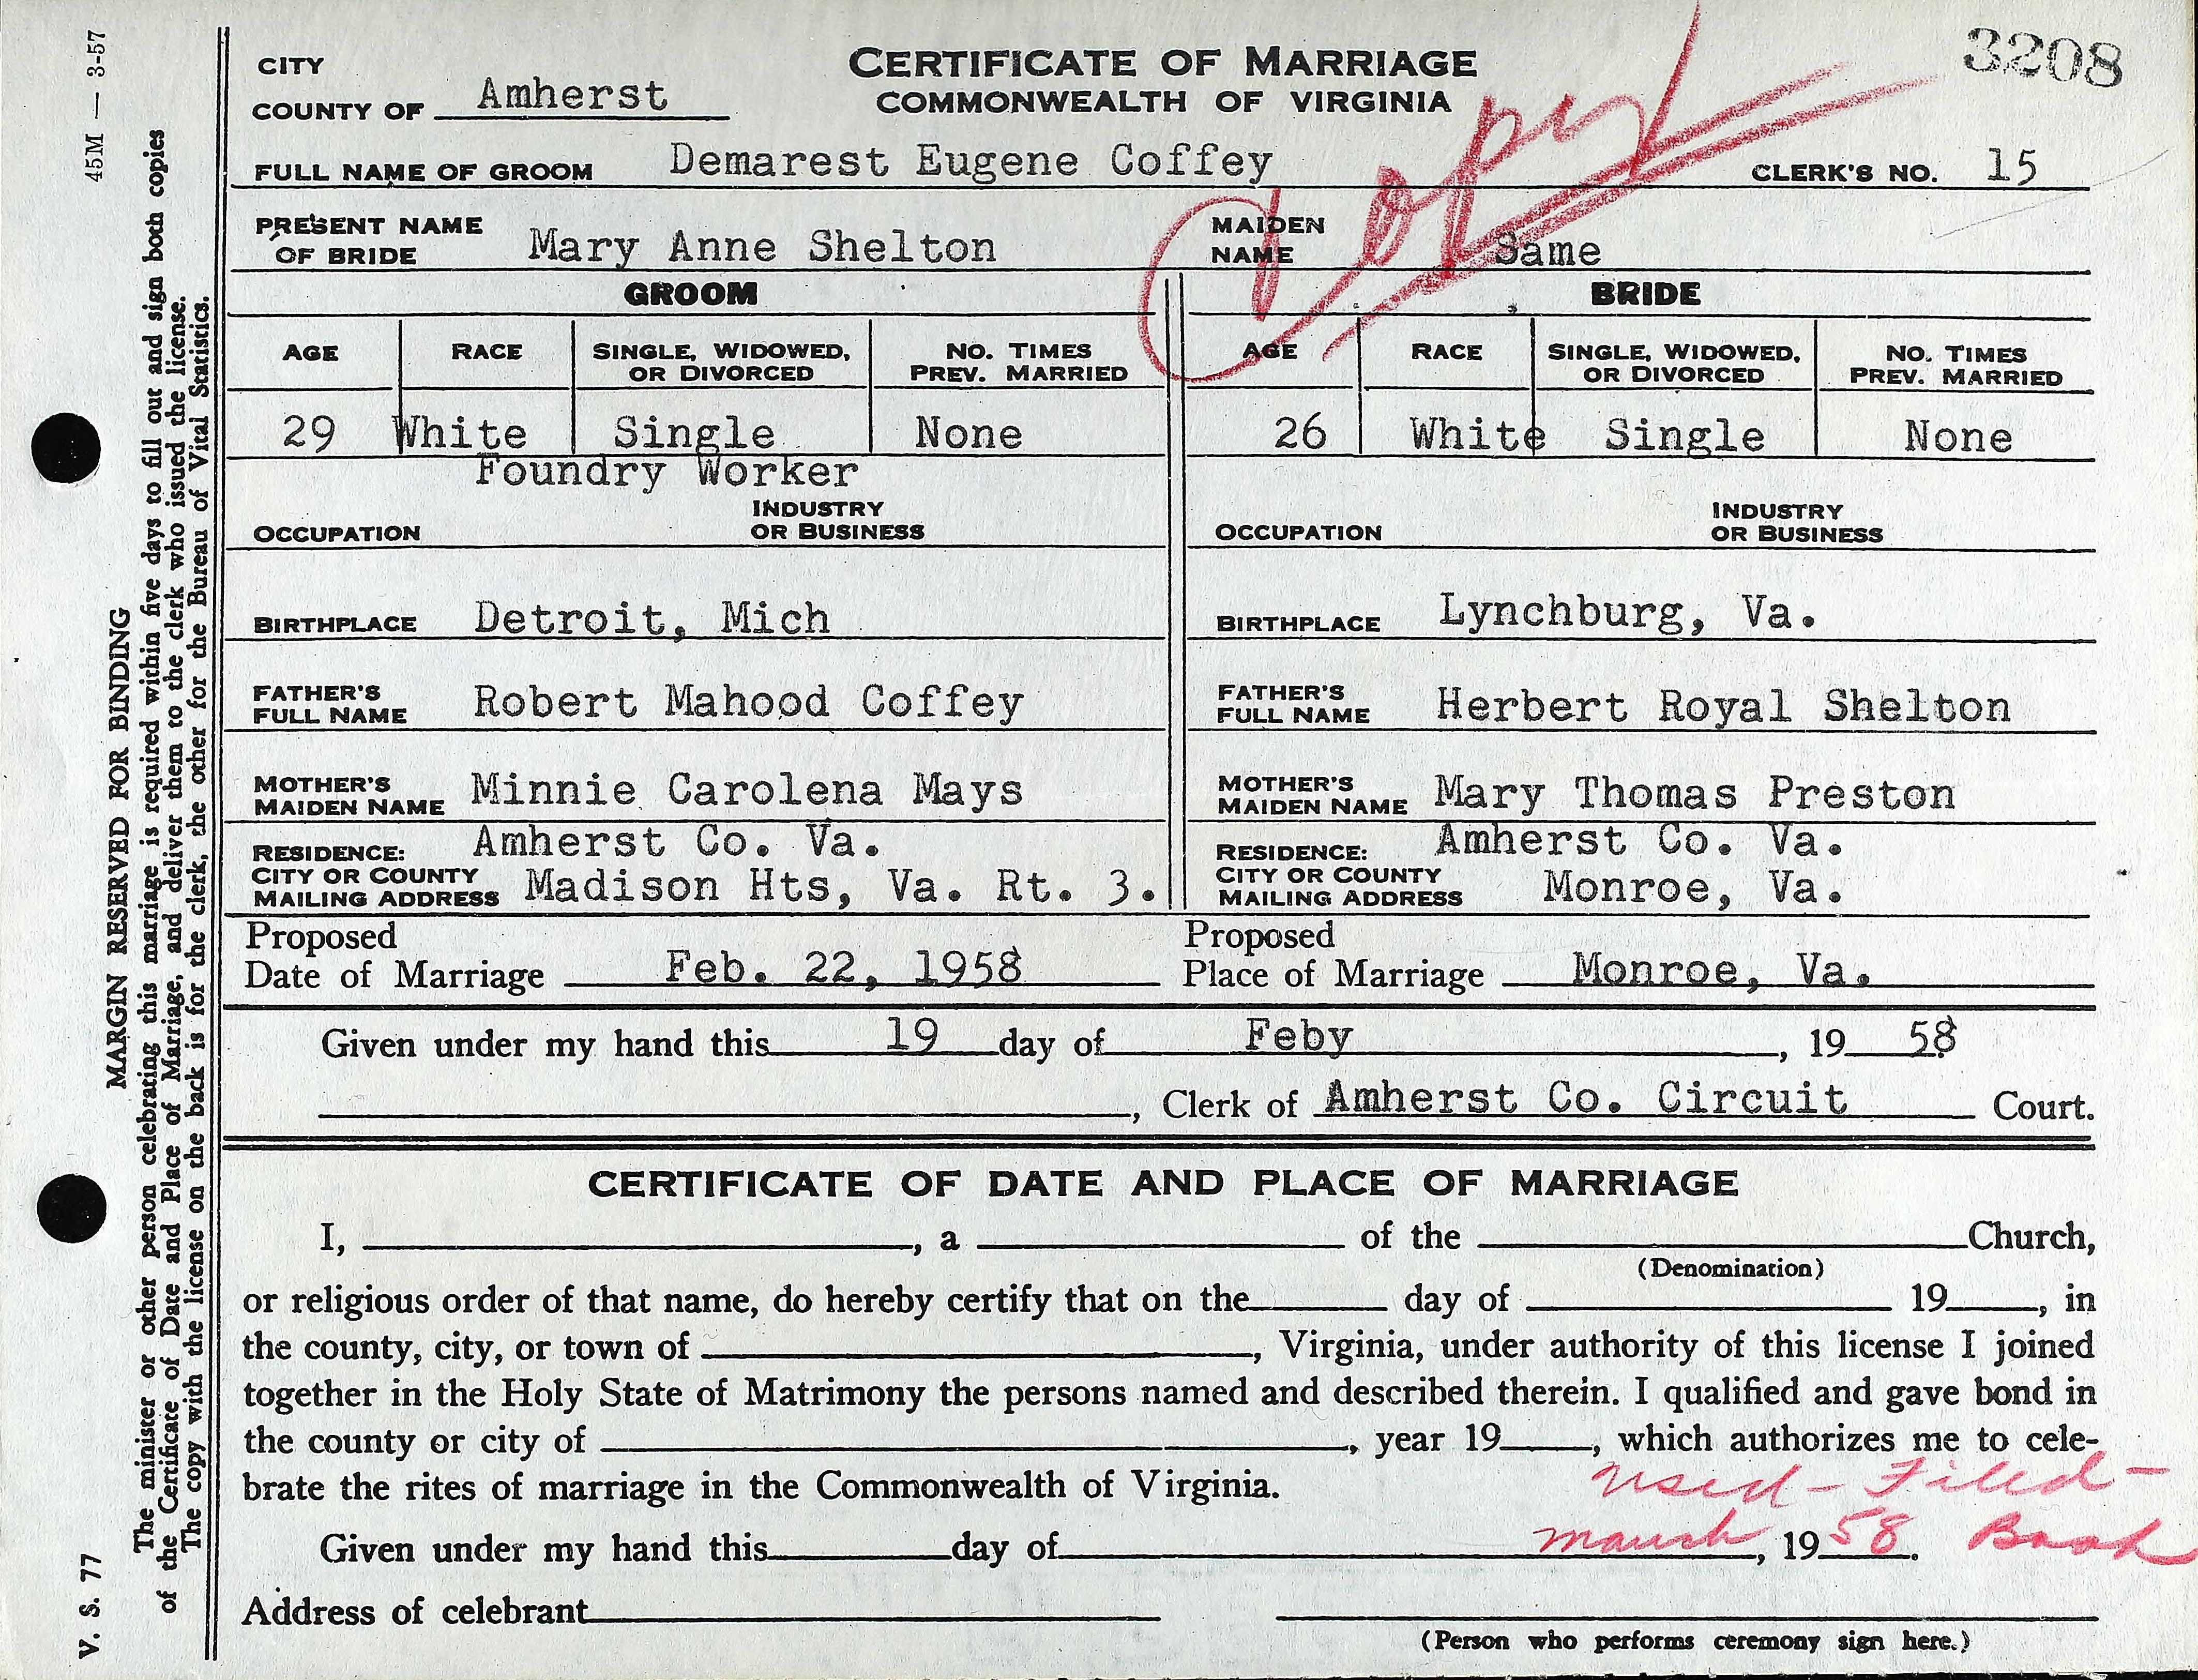 45M — 3-57
3208
CITY
COUNTY OF Amherst
CERTIFICATE OF MARRIAGE
COMMONWEALTH OF VIRGINIA
Copy
FULL NAME OF GROOM Demarest Eugene Coffey CLERK'S NO. 15
PRESENT NAME OF BRIDE Mary Anne Shelton MAIDEN NAME Same
GROOM BRIDE
AGE RACE SINGLE, WIDOWED, OR DIVORCED NO. TIMES PREV. MARRIED AGE RACE SINGLE, WIDOWED, OR DIVORCED NO. TIMES PREV. MARRIED
29 White Single None 26 White Single None
Foundry Worker
OCCUPATION INDUSTRY OR BUSINESS OCCUPATION INDUSTRY OR BUSINESS
BIRTHPLACE Detroit, Mich BIRTHPLACE Lynchburg, Va.
FATHER'S FULL NAME Robert Mahood Coffey FATHER'S FULL NAME Herbert Royal Shelton
MOTHER'S MAIDEN NAME Minnie Carolena Mays MOTHER'S MAIDEN NAME Mary Thomas Preston
RESIDENCE: CITY OR COUNTY Amherst Co. Va. RESIDENCE: CITY OR COUNTY Amherst Co. Va.
MAILING ADDRESS Madison Hts, Va. Rt. 3. MAILING ADDRESS Monroe, Va.
Proposed Date of Marriage Feb. 22, 1958 Proposed Place of Marriage Monroe, Va.
Given under my hand this 19 day of Feby, 19 58
, Clerk of Amherst Co. Circuit Court.
CERTIFICATE OF DATE AND PLACE OF MARRIAGE
I, , a of the Church,
(Denomination)
or religious order of that name, do hereby certify that on the day of 19 , in
the county, city, or town of , Virginia, under authority of this license I joined
together in the Holy State of Matrimony the persons named and described therein. I qualified and gave bond in
the county or city of , year 19 , which authorizes me to cele-
brate the rites of marriage in the Commonwealth of Virginia.
Used - Filed -
Given under my hand this day of March, 19 58. Book
Address of celebrant
(Person who performs ceremony sign here.)
V. S. 77
MARGIN RESERVED FOR BINDING
The minister or other person celebrating this marriage is required within five days to fill out and sign both copies
of the Certificate of Date and Place of Marriage, and deliver them to the clerk who issued the license.
The copy with the license on the back is for the clerk, the other for the Bureau of Vital Statistics.